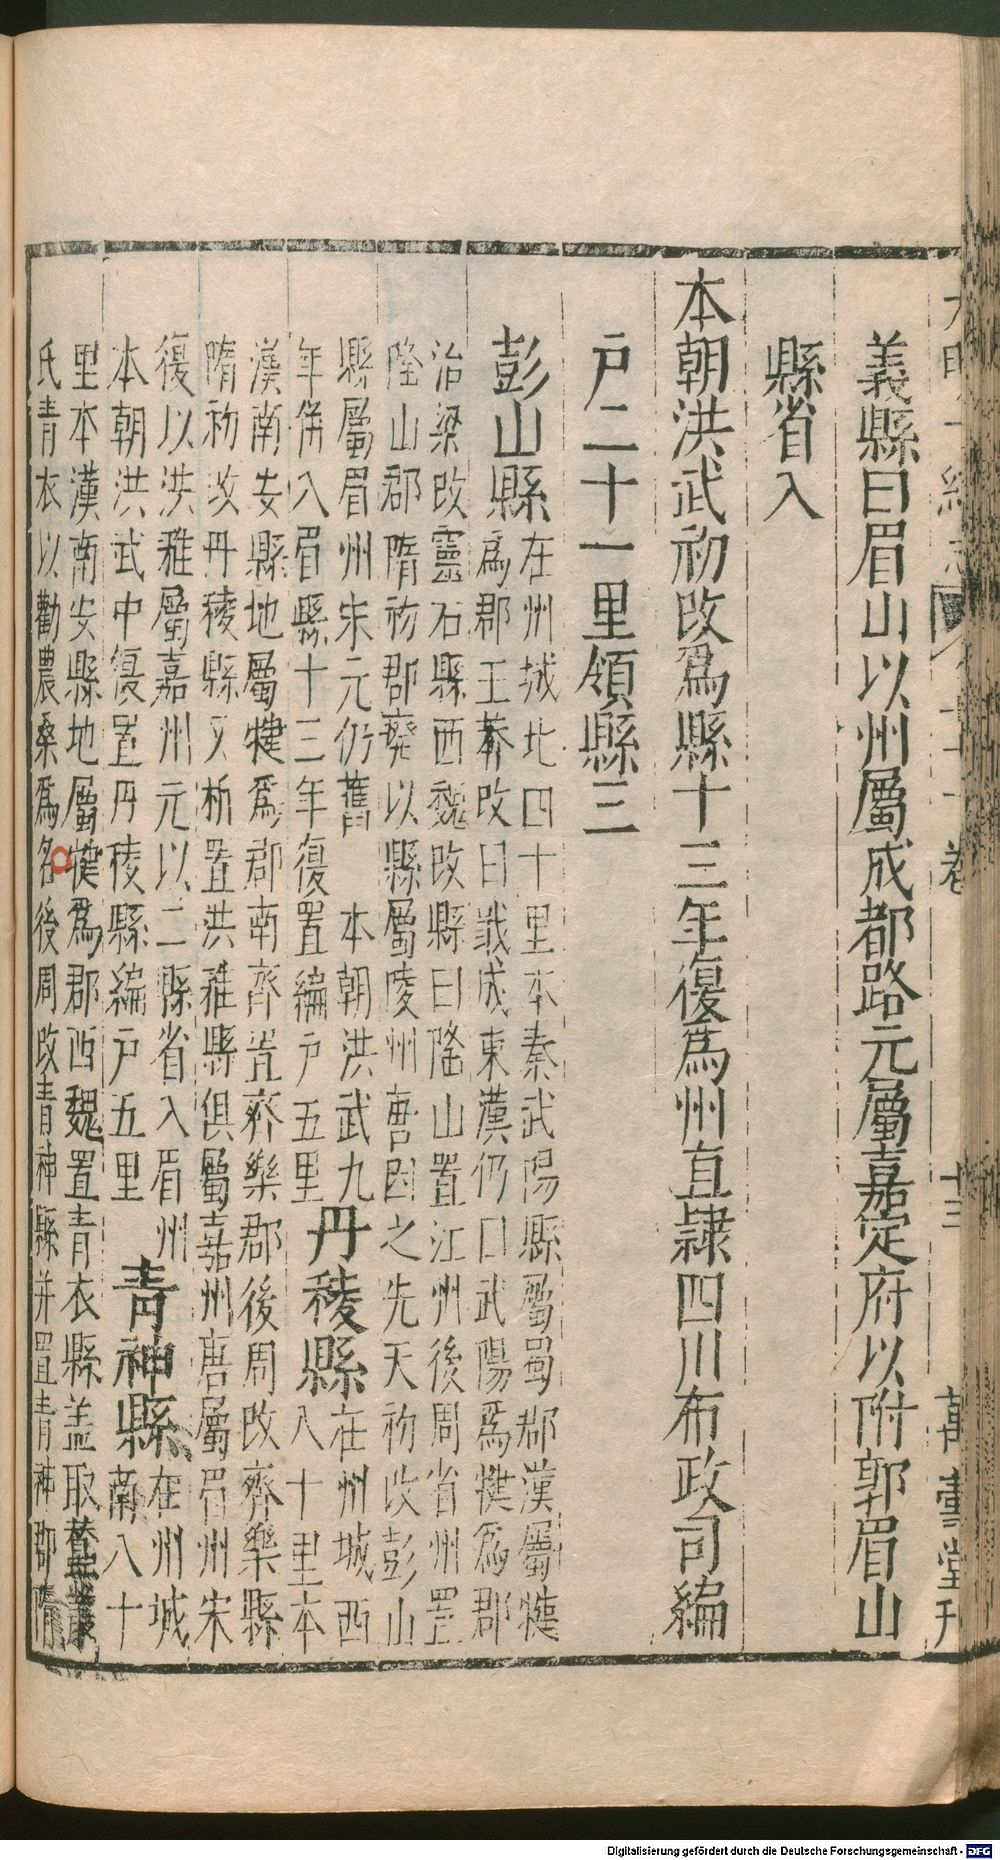 義縣曰眉山以州屬成都路元屬嘉定府以附郭眉山
縣省入
本朝洪武初改爲縣十三年復爲州直隷四川布政司編
戶二十一里領縣三
彭山縣
在州城北四十里本秦武陽縣屬蜀郡漢屬犍
爲郡王莽改曰戢成東漢仍曰武陽爲犍爲郡
治梁改靈石縣西魏改縣曰隆山置江州後周省州置
隆山郡隋初郡廢以縣屬陵州唐因之先天初改彭山
縣屬眉州宋元仍舊 本朝洪武九
年併入眉縣十三年復置編戶五里
丹稜縣
在州城西
八十里本
漢南安縣地屬犍爲郡南齊置齊樂郡後周改齊樂縣
隋初改丹稜縣又析置洪雅縣俱屬嘉州唐屬眉州宋
復以洪雅屬嘉州元以二縣省入眉州
本朝洪武中復置丹稜縣編戶五里
青神縣
在州城
南八十
里本漢南安縣地屬犍爲郡西魏置青衣縣盖取蠶叢
氏青衣以勸農桑爲名後周改青神縣并置青神郡隋
萬書堂刊
Digitalisierung gefördert durch die Deutsche Forschungsgemeinschaft - DFG